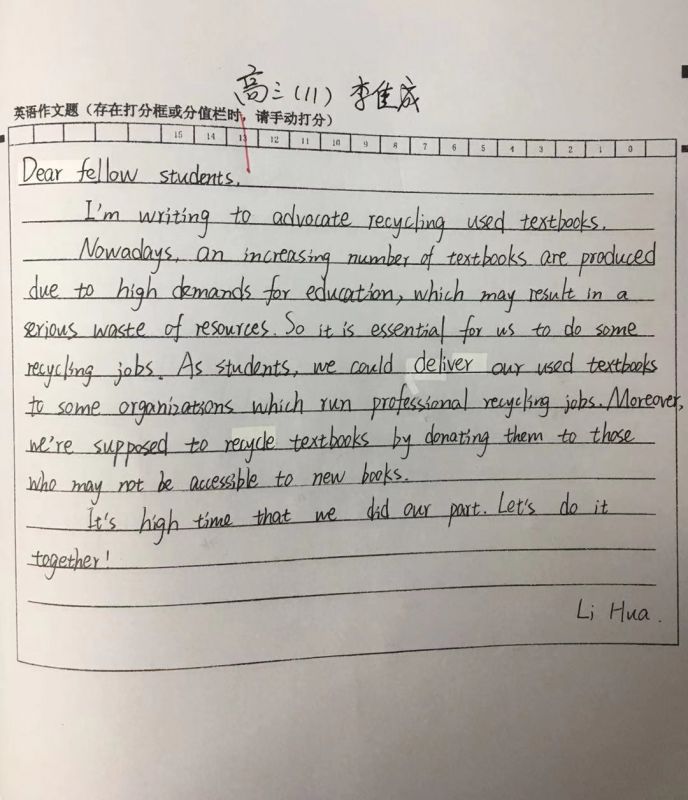 高三(11) 李佳成
英语作文题（存在打分框或分值栏时，请手动打分）
15 14 13 12 11 10 9 8 7 6 5 4 3 2 1 0
Dear fellow students,
I'm writing to advocate recycling used textbooks.
Nowadays, an increasing number of textbooks are produced
due to high demands for education, which may result in a
serious waste of resources. So it is essential for us to do some
recycling jobs. As students, we could deliver our used textbooks
to some organizations which run professional recycling jobs. Moreover,
we're supposed to recycle textbooks by donating them to those
who may not be accessible to new books.
It's high time that we did our part. Let's do it
together!
Li Hua.